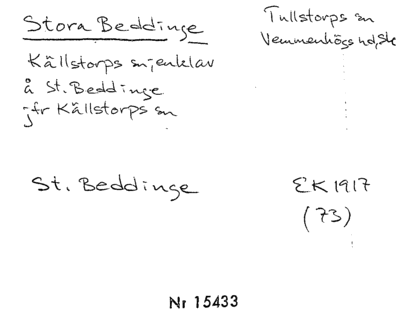 Stora Beddinge
Tullstorps sn
Vemmenhögs hd, Sk
Källstorps sn; enklav
å St. Beddinge
jfr Källstorps sn
St. Beddinge
EK 1917
(73)
Nr 15433